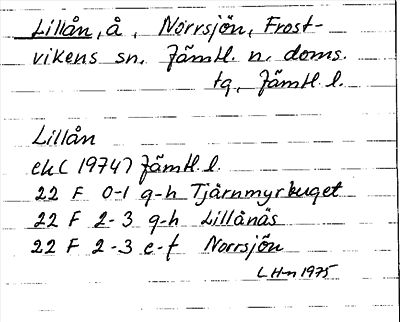 Lillån, å, Norrsjön, Frost-
vikens sn. Jämtl. n. doms.
tg, Jämtl. l.
Lillån
ek (1974) Jämtl. l.
22 F 0-1 g-h Tjärnmyrbuget
22 F 2-3 g-h Lillånäs
22 F 2-3 e-f Norrsjön
LHm 1975